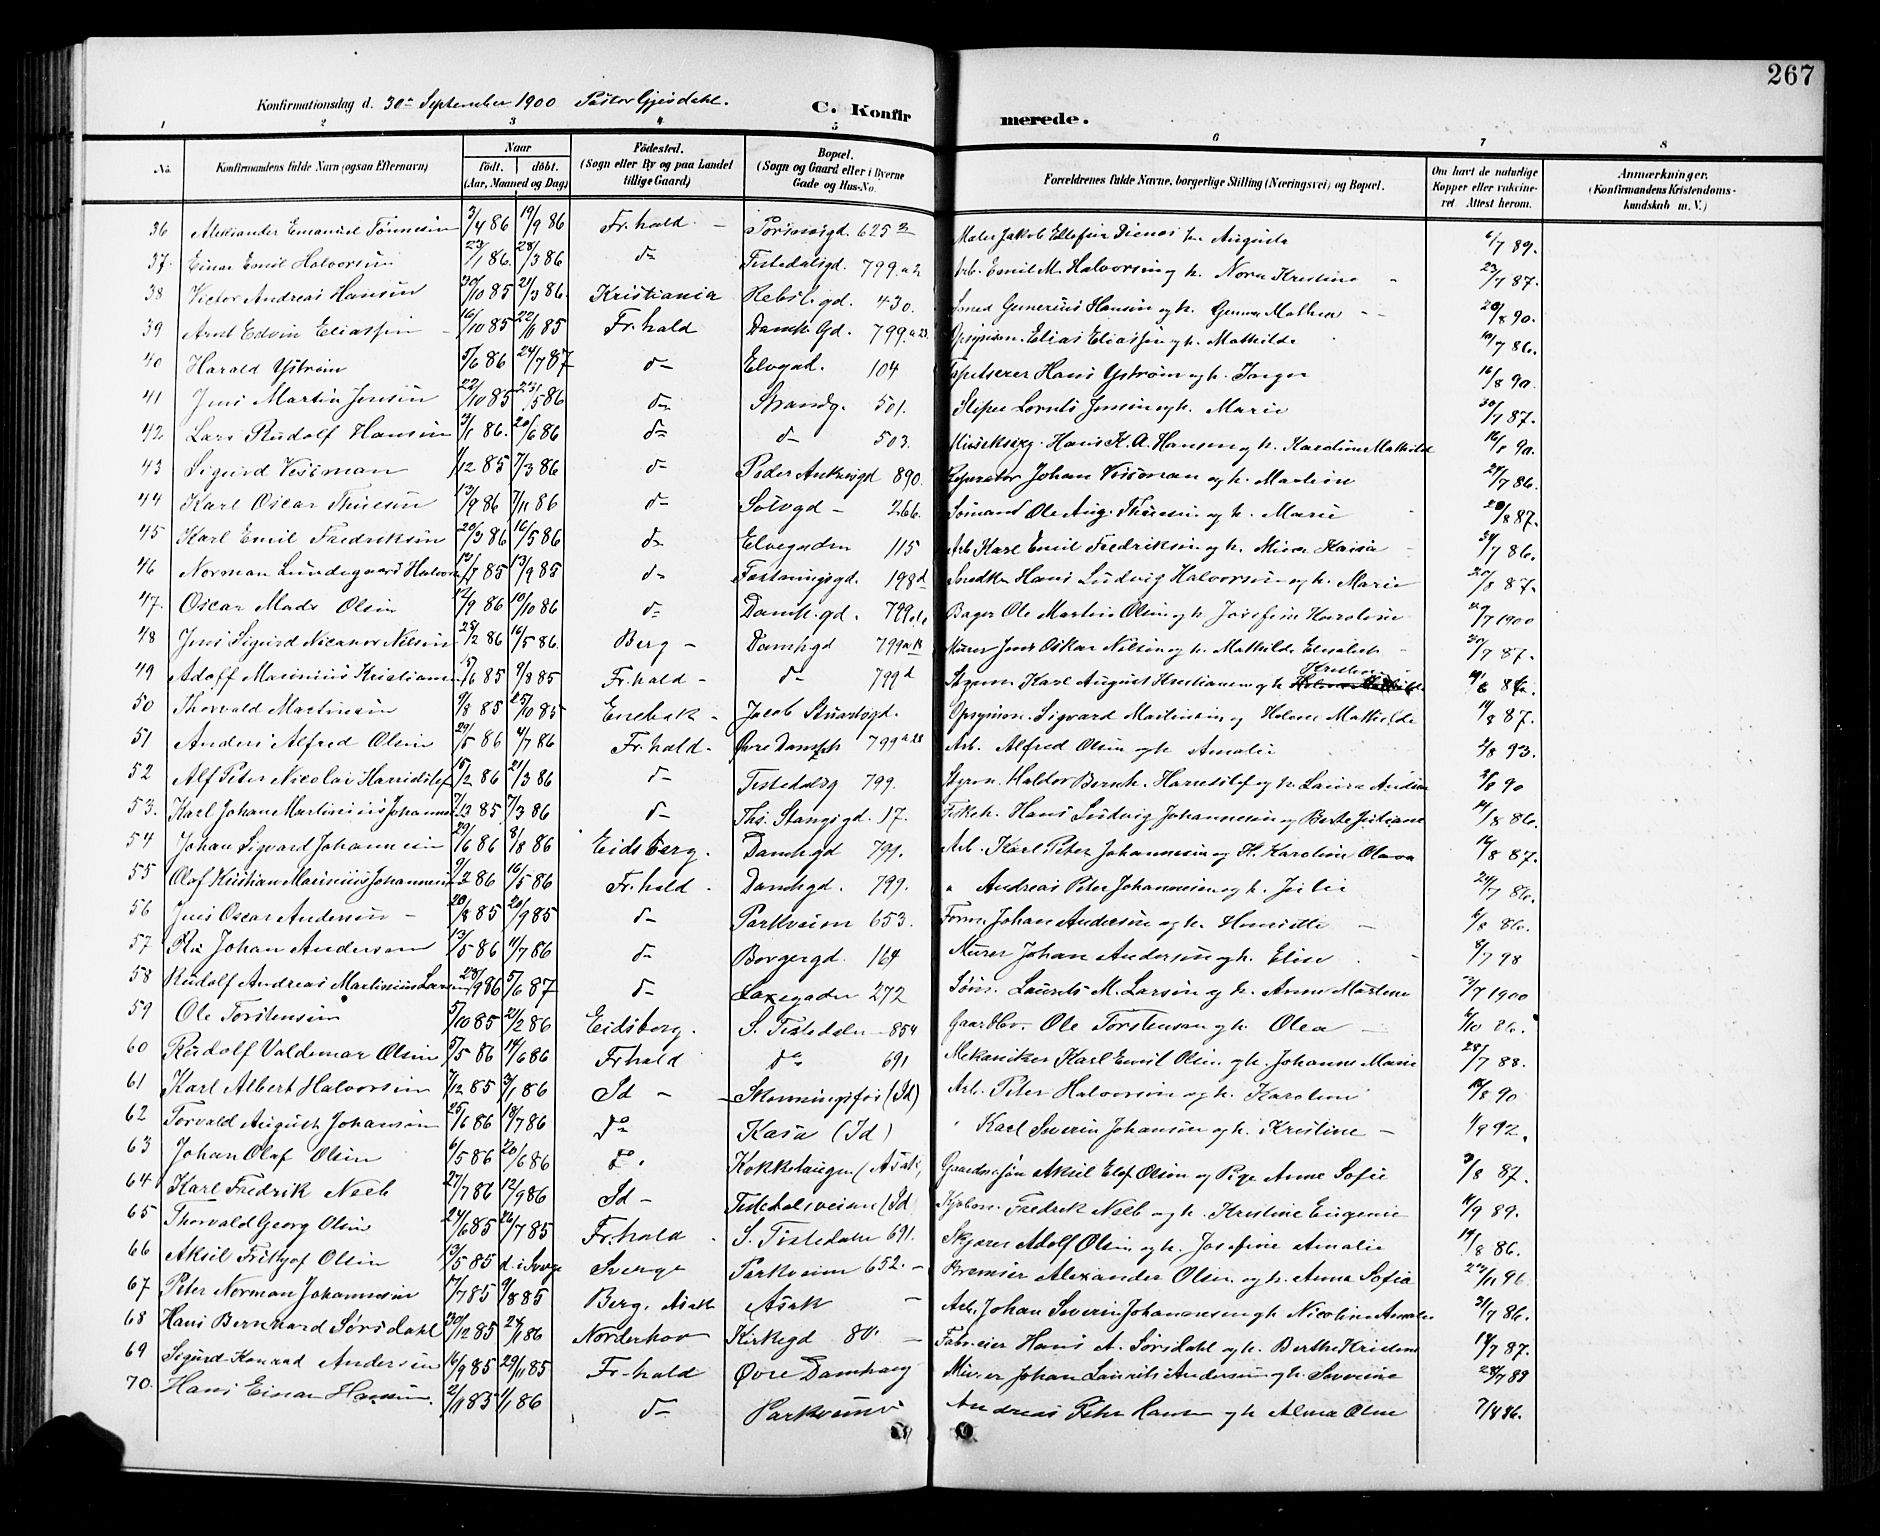 267
Konfirmationsdag d. 30te September 1900 Pastor Gjesdahl.
C. Konfirmerede.
1 2 3 4 5 6 7 8
No. Konfirmandens fulde Navn (ogsaa Efternavn) Naar födt. döbt. (Aar, Maaned og Dag) Födested. (Sogn eller By og paa Landet tillige Gaard) Bopæl. (Sogn og Gaard eller i Byerne Gade og Hus-No. Forældrenes fulde Navne, borgerlige Stilling (Næringsvei) og Bopæl. Om havt de naturlige Kopper eller vakcineret. Attest herom. Anmærkninger. (Konfirmandens Kristendomskundskab m. V.)
36 Aleksander Emanuel Tönnesen 3/4 86 19/9 86 Fr.hald - 625 Maler Jakob Ellefsen h. Augusta 6/7 89.
37. Einar Emil Halvorsen 23/1 86. 28/3 86 do Tistedalsgd. 799.a2 Arb. Emil M. Halvorsen og h. Nora Kristine 23/7 87.
38 Victor Andreas Hansen 30/10 85 21/3 86. Kristiania Rebslgd. 430. Smed Gunerius Hansen og h. Gunnor Mathea 20/8 90.
39 Arnt Edvin Eliassen 16/10 85 22/11 85 Fr.hald Damh. Gd. 799.a23. Opsynsm. Elias Eliassen og h. Mathilde 10/7 86.
40 Harald Yström 5/6 86 24/7 87 do Elvegd. 104 Tapetserer Hans Yström og h. Inger 16/8 90.
41 Jens Martin Jensen 22/10 85 23/5 86 do Strandg. 501. Stiper Lornts Jensen og h. Marie 30/7 87.
42 Lars Rudolf Hansen 3/1 86. 20/6 86 do do 503. Hans K. A. Hansen og h. Karoline Mathild 16/8 90.
43 Sigurd Vessman 1/12 85 7/3 86 do Peder Ankersgd 890. Reparatör Johan Vessman og h. Martine 27/7 86.
44 Karl Oscar Thuesen 13/9 86 7/11 86 do Sölvgd - 266. Sömand Ole Aug. Thuesen og h. Marie 20/8 87.
45 Karl Emil Fredriksen 20/3 86 16/5 86 do Elvegaden 115 Arb. Karl Emil Fredriksen og h. Mina Kaisa 31/7 86.
46 Norman Lundegaard Halvors 12/7 85 13/9 85 do Fæstningsgd. 198d Snedker Hans Ludvig Halvorsen og h. Marie 20/8 87.
47. Oscar Mads Olsen 12/9 86 10/10 86 do Damh.gd. 799 Bager Ole Martin Olsen og h. Josefine Karoline 29/7 1900
48 Jens Sigurd Nicanor Nilsen 25/2 86 16/5 86. Berg - Damhgd 799a Murer Jens Oskar Nilsen og h. Mathilde Elisabeth 20/7 87.
49 Adolf Marinius Kristiansen 5/6 85 9/8 85 Fr.hald - do 799d Karl August Kristiansen og h. Kristine
50 Thorvald Martinsen 9/8 85 25/10 85 Enebak - Jacob Stuartsgd. Opsynsm. Sigvard Martinsen og Helene Mathilde 14/8 87.
51 Anders Alfred Olsen 29/5 86 4/7 86 Fr.hald. Övre Damh 799a28 Arb. Alfred Olsen og h. Amalie 2/8 93.
52 Alf Peter Nicolai Haraldsef 15/2 86 21/3 86 do Tistedalsg 799. Halvor Bernh. og h. Laura Andrea 2/8 90
53. Karl Johan Martinius Johannes 7/12 85. 7/3 86 do Ths. Stangsgd. 17. Fiskeh. Hans Ludvig Johannesen og Berte Juliane 14/8 86.
54 Johan Sigvard Johannesen 29/6 86 8/8 86 Eidsberg. Damhgd 799. Arb. Karl Peter Johannesen og H. Karoline Olava 16/8 87.
55 Olaf Kristian Marinius Johannesen 9/3 86 16/5 86 Fr.hald. Damhgd. 799. " Andreas Peter Johannesen og h. Julie 24/7 86.
56 Jens Oscar Andersen - 20/8 85 20/9 85 do Parkveien 653. Form. Johan Andersen og h. Henriette 6/8 86.
57 Johan Andersen 13/5 86 4/7 86 do Borgergd. 164 Murer Johan Andersen og h. Elise 8/7 98
58 Rudolf Andreas Martinius Larsen 28/9 86 5/6 87 do Laxegaden 272 Söm. Laurits M. Larsen og h. Anne Martine 3/7 1900
59 Ole Torstensen 5/10 85 21/2 86 Eidsberg. S. Tistedalen - 854 Ole Torstensen og h. Olea - 6/10 86.
60 Rudolf Valdemar Olsen 5/5 86 14/6 86 Fr.hald do 691 Mekaniker Karl Emil Olsen og h. Johanne Marie 28/7 88.
61 Karl Albert Halvorsen 7/12 85 3/1 86 Id - - Skonningsfos (Id) Arb. Peter Halvorsen og h. Karoline 18/8 90
62 Torvald August Johansen 25/6 86 18/7 86 do Kasa (Id) " Karl Severin Johansen og h. Kristine - 1/9 92.
63 Johan Olaf Olsen 6/5 86 20/6 86 do. Kokkehaugen (Asak, Aksel Elof Olsen og Pige Anne Sofie 3/8 87.
64 Karl Fredrik Neeb 27/7 86 12/9 86 Id - Tistedalsveien (Id Fredrik Neeb og h. Kristine Eugenie 11/9 89.
65 Thorvald Georg Olsen 24/6 85 26/7 85 Fr.hald S. Tistedalen 691. Skjærer Adolf Olsen og h. Josefine Amalie 14/8 86.
66 Aksel Frithjof Olsen 13/5 85 d. i Sverge Sverge Parkveien 652. - Bremser Alexander Olsen og h. Anna Sofia 23/11 96.
67 Peter Norman Johannesen 17/7 85 9/8 85 Berg, Asak Asak - Arb. Johan Severin Johannesen og h. Nicoline Amalie 31/7 86.
68 Hans Bernhard Sörsdahl 30/12 85 24/1 86 Norderhov Kirkegd 80. - Hans A. Sörsdahl og h. Berthe Kristene 14/7 87.
69 Sigurd Konrad Andersen 16/9 85 29/11 85 Fr.hald Övre Damhaug Murer Johan Laurits Andersen og h. Severine 28/7 89
70. Hans Einar Hansen. 21/11 85 1/1 86 do Parkveien Andreas Peter Hansen og h. Alma Oline 7/4 86.